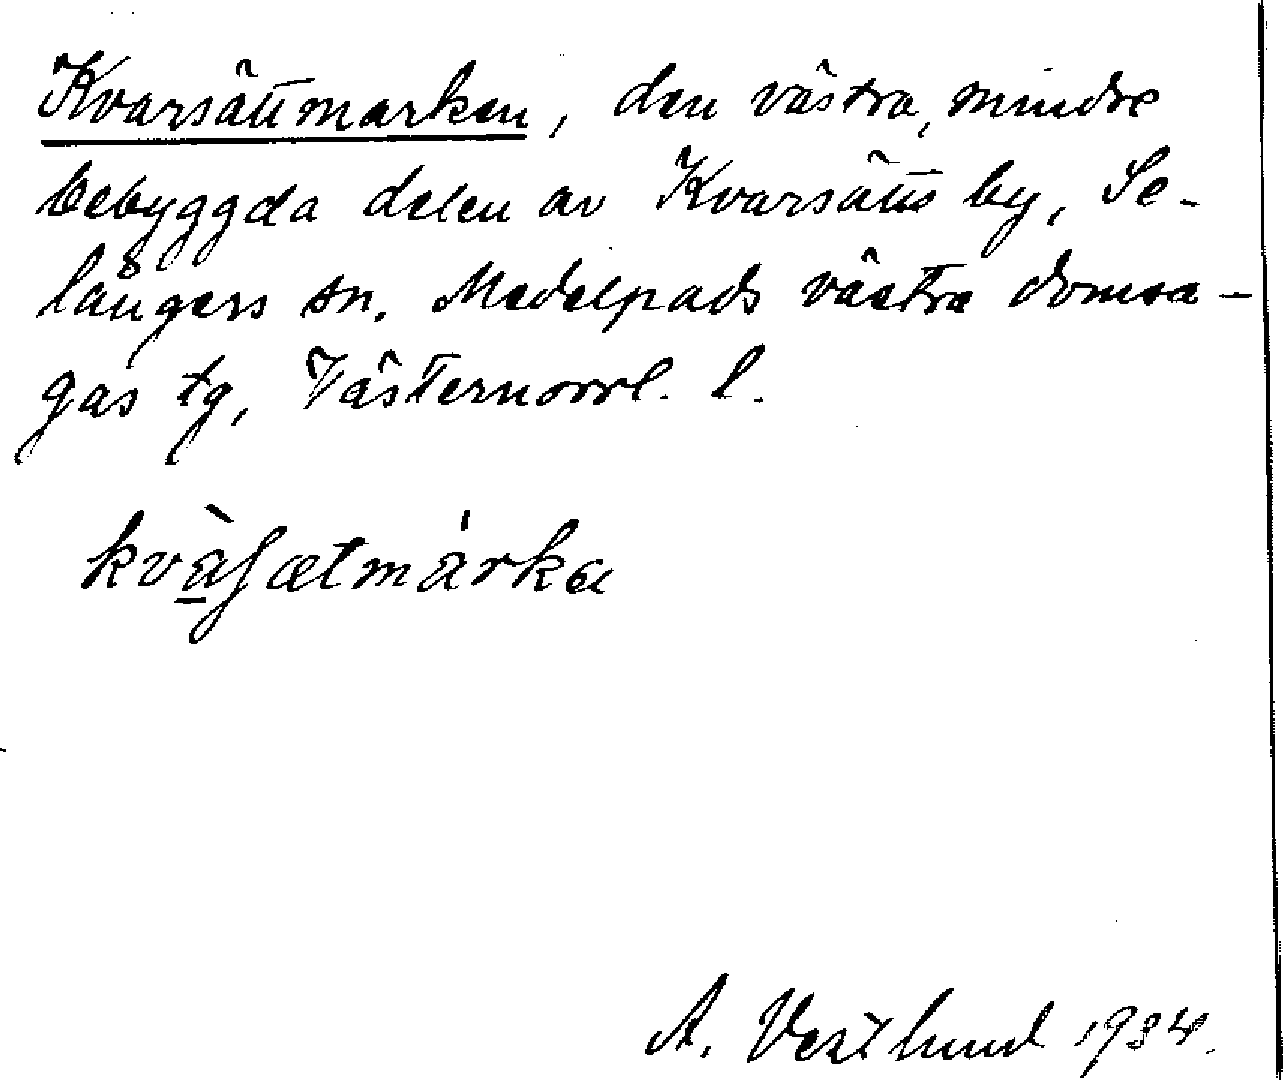 Kvarsättmarken, den västra, mindre
bebyggda delen av Kvarsätts by, Se-
långers sn. Medelpads västra domsa-
gas tg, Västernorrl. l.
kvàʃætmárka
A. Vestlund 1934.